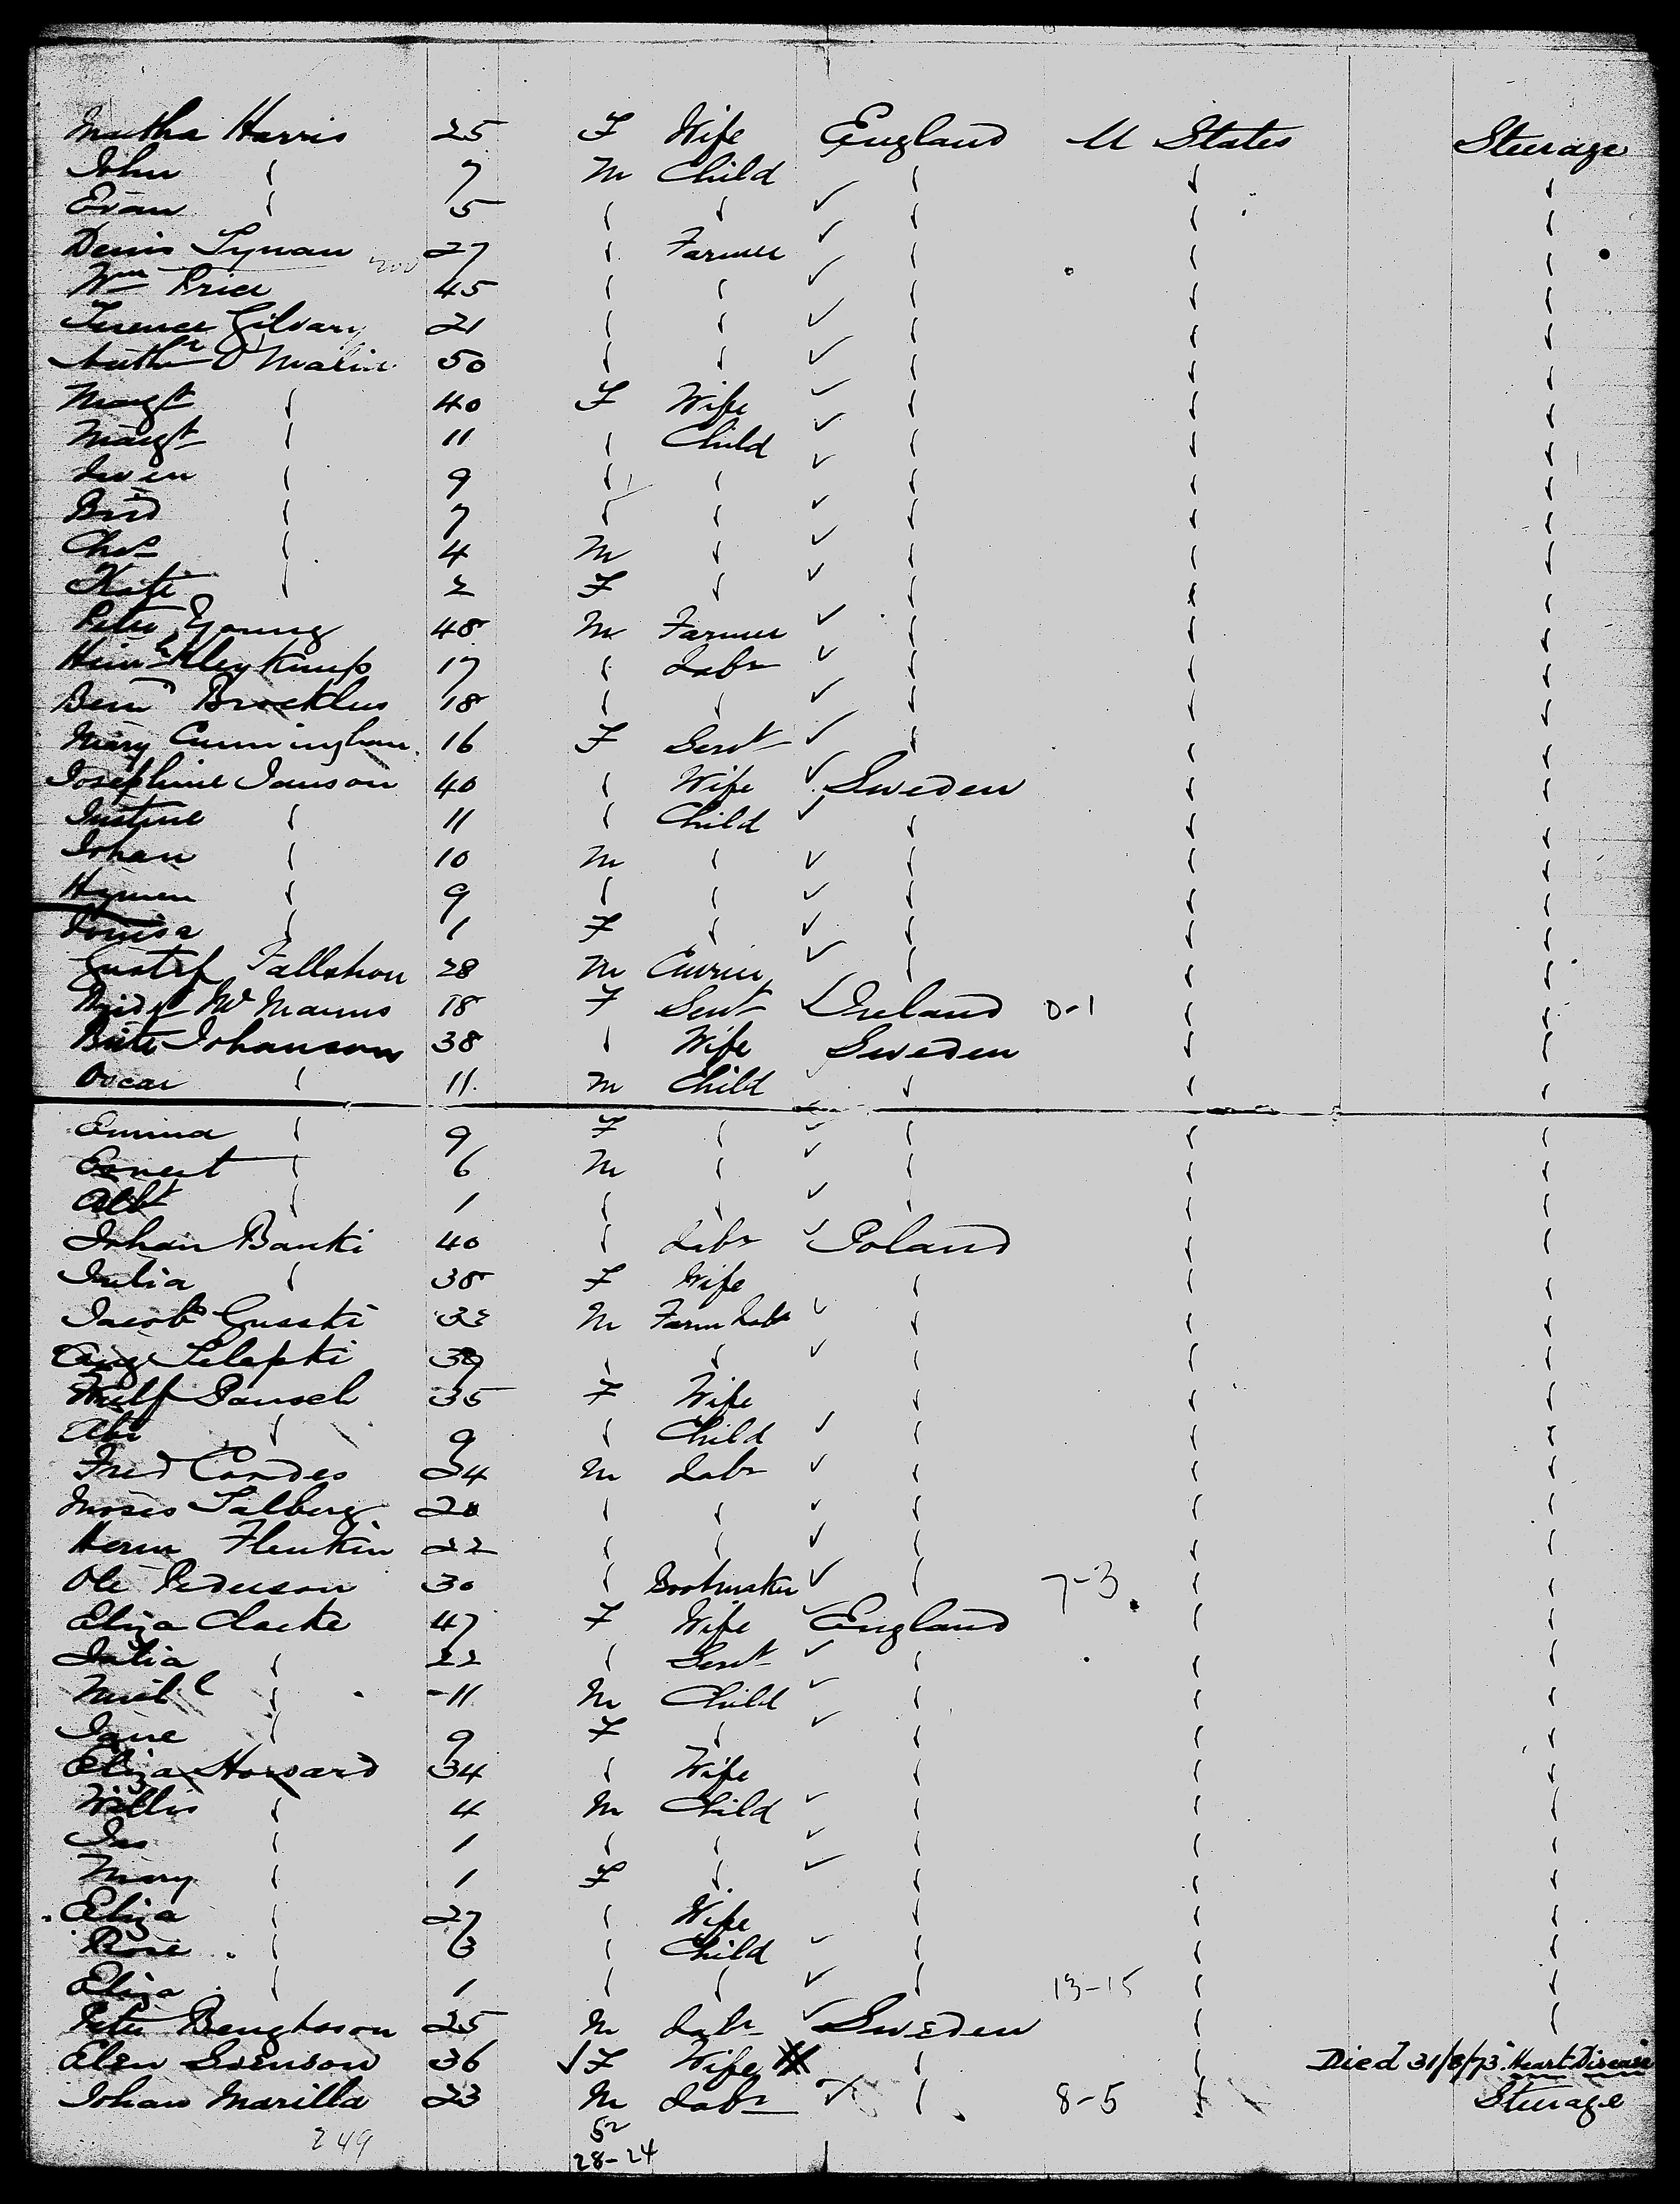 Martha Harris 25 F Wife England U States Steerage
John " 7 M Child " " "
Evan " 5 " " ✓ " " "
Denis Tynan 27 " Farmer ✓ " " "
Wm Price 45 " " ✓ " " "
Terence Gilvary 21 " " ✓ " " "
O'Malin 50 " " ✓ " " "
Margt " 40 F Wife ✓ " " "
Margt " 11 " Child ✓ " " "
" 9 " " ✓ " " "
Brid " 7 " " ✓ " " "
Chas " 4 M " ✓ " " "
Kate " 2 F " ✓ " " "
Peter Young 48 M Farmer ✓ " " "
Heinh Kleykamp 17 " Labr ✓ " " "
Bernd Brocklus 18 " " ✓ " " "
Mary Cunningham 16 F Servt ✓ " " "
Josephine Janson 40 " Wife ✓ Sweden " "
Justine " 11 " Child ✓ " " "
Johan " 10 M " ✓ " " "
Hymen " 9 " " ✓ " " "
Louisa " 1 F " ✓ " " "
Gustaf Fallshon 28 M Currier ✓ " " "
Bridgt McManus 18 F Servt ✓ Ireland 0-1 " "
Johanson 38 " Wife Sweden " "
Oscar " 11 M Child ✓ " " "
Emma " 9 F " ✓ " " "
Ernest " 6 M " ✓ " " "
Albt " 1 " " ✓ " " "
Johan Banki 40 " Labr ✓ Poland " "
Julia " 38 F Wife " " "
Jacob Gusski 33 M Farm Labr ✓ " " "
Aug Selepki 39 " " ✓ " " "
Wulf Pausch 35 F Wife " " "
Abr " 9 " Child ✓ " " "
Fred Cordes 34 M Labr ✓ " " "
Moses Salberg 20 " " ✓ " " "
Herm Flenkin 22 " " ✓ " " "
Ole Pederson 30 " Bootmaker ✓ " 7-3 " "
Eliza Clarke 47 F Wife ✓ England " "
Julia " 22 " Servt ✓ " " "
Michl " 11 M Child ✓ " " "
Jane " 9 F " ✓ " " "
Eliza Howard 34 " Wife " " "
Willis " 4 M Child ✓ " " "
Jas " 1 " " ✓ " " "
Mary " 1 F " ✓ " " "
Eliza " 27 " Wife " " "
Rose " 3 " Child ✓ " " "
Eliza " 1 " " ✓ " 13-15 " "
Peter Bengtsson 25 M Labr ✓ Sweden " "
Elen Svenson 36 ✓ F Wife " " Died 31/8/73 Heart Disease
Johan Marilla 23 M Labr " 8-5 " Steerage
249 52
28-24